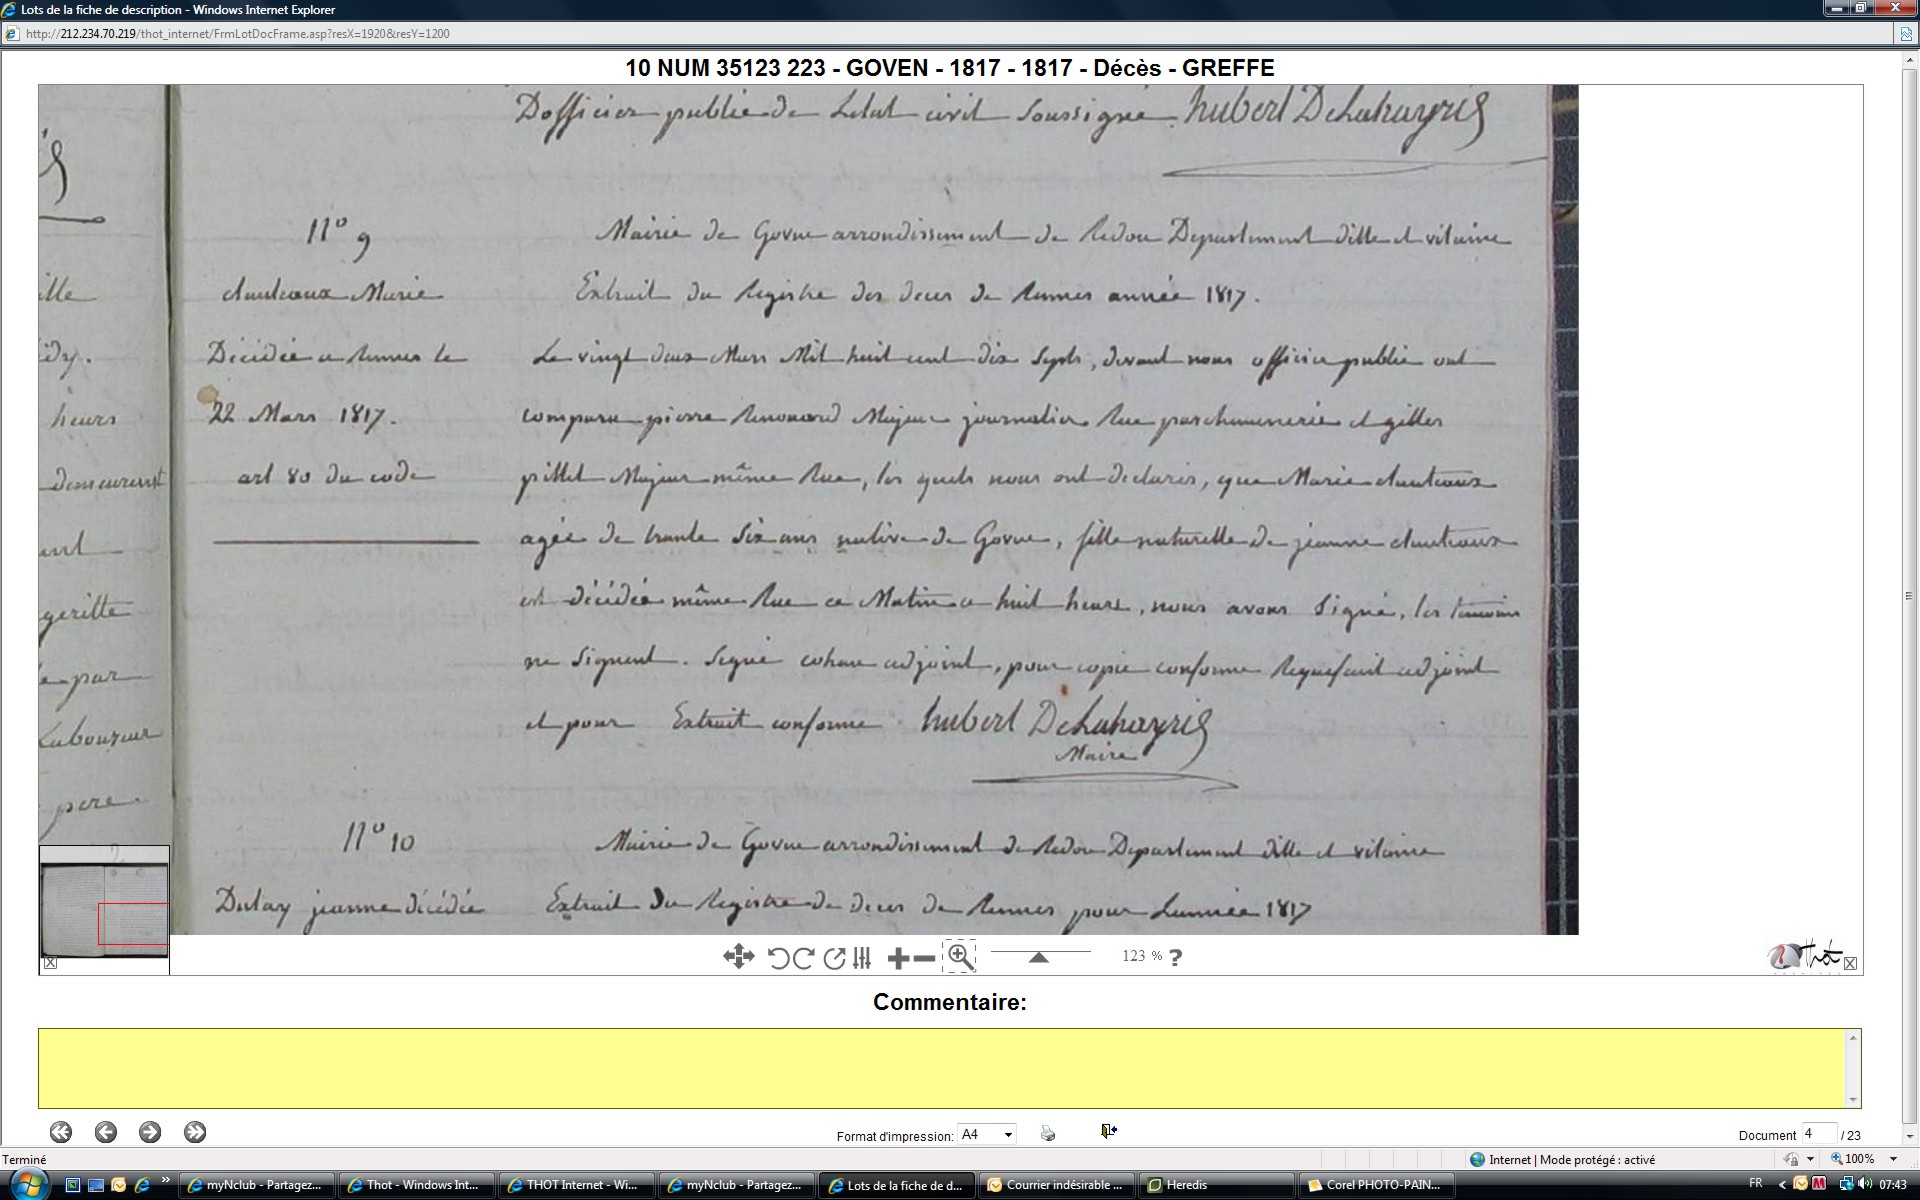 Lots de la fiche de description - Windows Internet Explorer
http://212.234.70.219/thot_internet/FrmLotDocFrame.asp?resX=1920&resY=1200
10 NUM 35123 223 - GOVEN - 1817 - 1817 - Décès - GREFFE
D'officier public de Letat civil soussigné. hubert DeLahayris
N° 9
Marie
Décédée a Rennes le
22 Mars 1817.
art 80 du code
Mairie de Goven arrondissement de Redon Departement dille et vilaine
Extrait du Registre des deces de Rennes année 1817.
Le vingt deux Mars Mil huit cent dix Sept, devant nous officier public ont
comparu pierre Renouard Majeur journalier Rue parchuminerie et gilles
pillet Majeur même Rue, les quels nous ont declarés, que Marie
agée de trente Six ans native de Goven, fille naturelle de jeanne
est décédée même Rue ce Matin a huit heure, nous avons Signé, les temoins
ne Signent. Signé adjoint, pour copie conforme adjoint
et pour Extrait conforme hubert DeLahayris
Maire
N° 10
Mairie de Goven arrondissement de Redon Departement dille et vilaine
jeanne décédée
Extrait du Registre de deces de Rennes pour Lannée 1817
ille
idy.
heurs
demeurant
ant
geritte
par
Laboureur
pere
123 % ?
Thot
Commentaire:
Format d'impression: A4
Document 4 / 23
Terminé
Internet | Mode protégé : activé
100%
myNclub - Partagez...
Thot - Windows Int...
THOT Internet - Wi...
myNclub - Partagez...
Lots de la fiche de d...
Courrier indésirable ...
Heredis
Corel PHOTO-PAIN...
FR
07:43